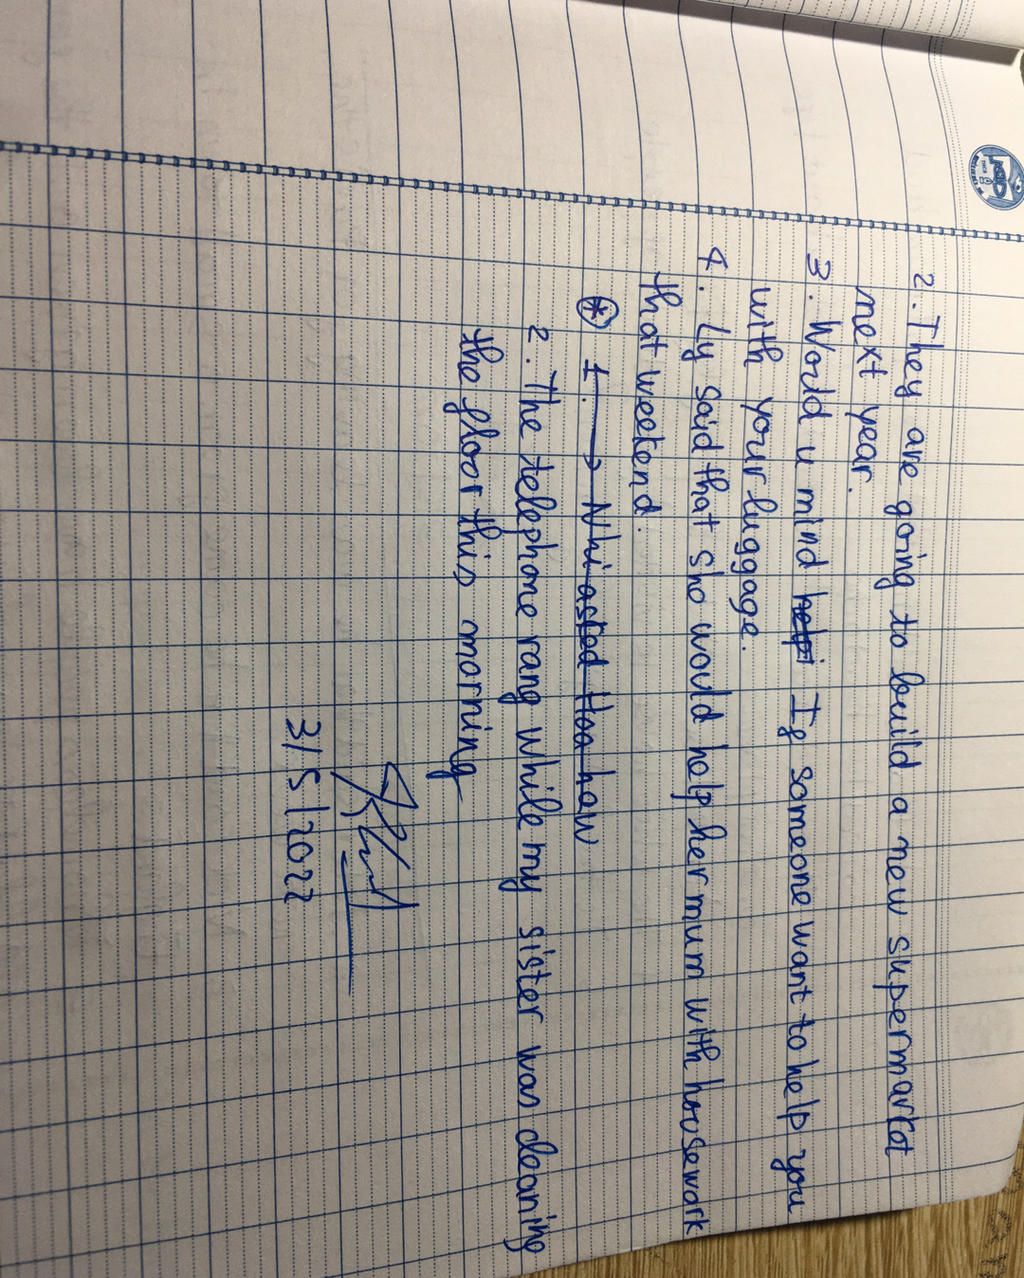 2. They are going to build a new supermarket
next year.
3. Would u mind help If someone want to help you
with your luggage.
4. Ly said that she would help her mum with housework
that weekend.
* 1. → Nhi asked Hoa how
2. The telephone rang while my sister was cleaning
the floor this morning
3/5/2022